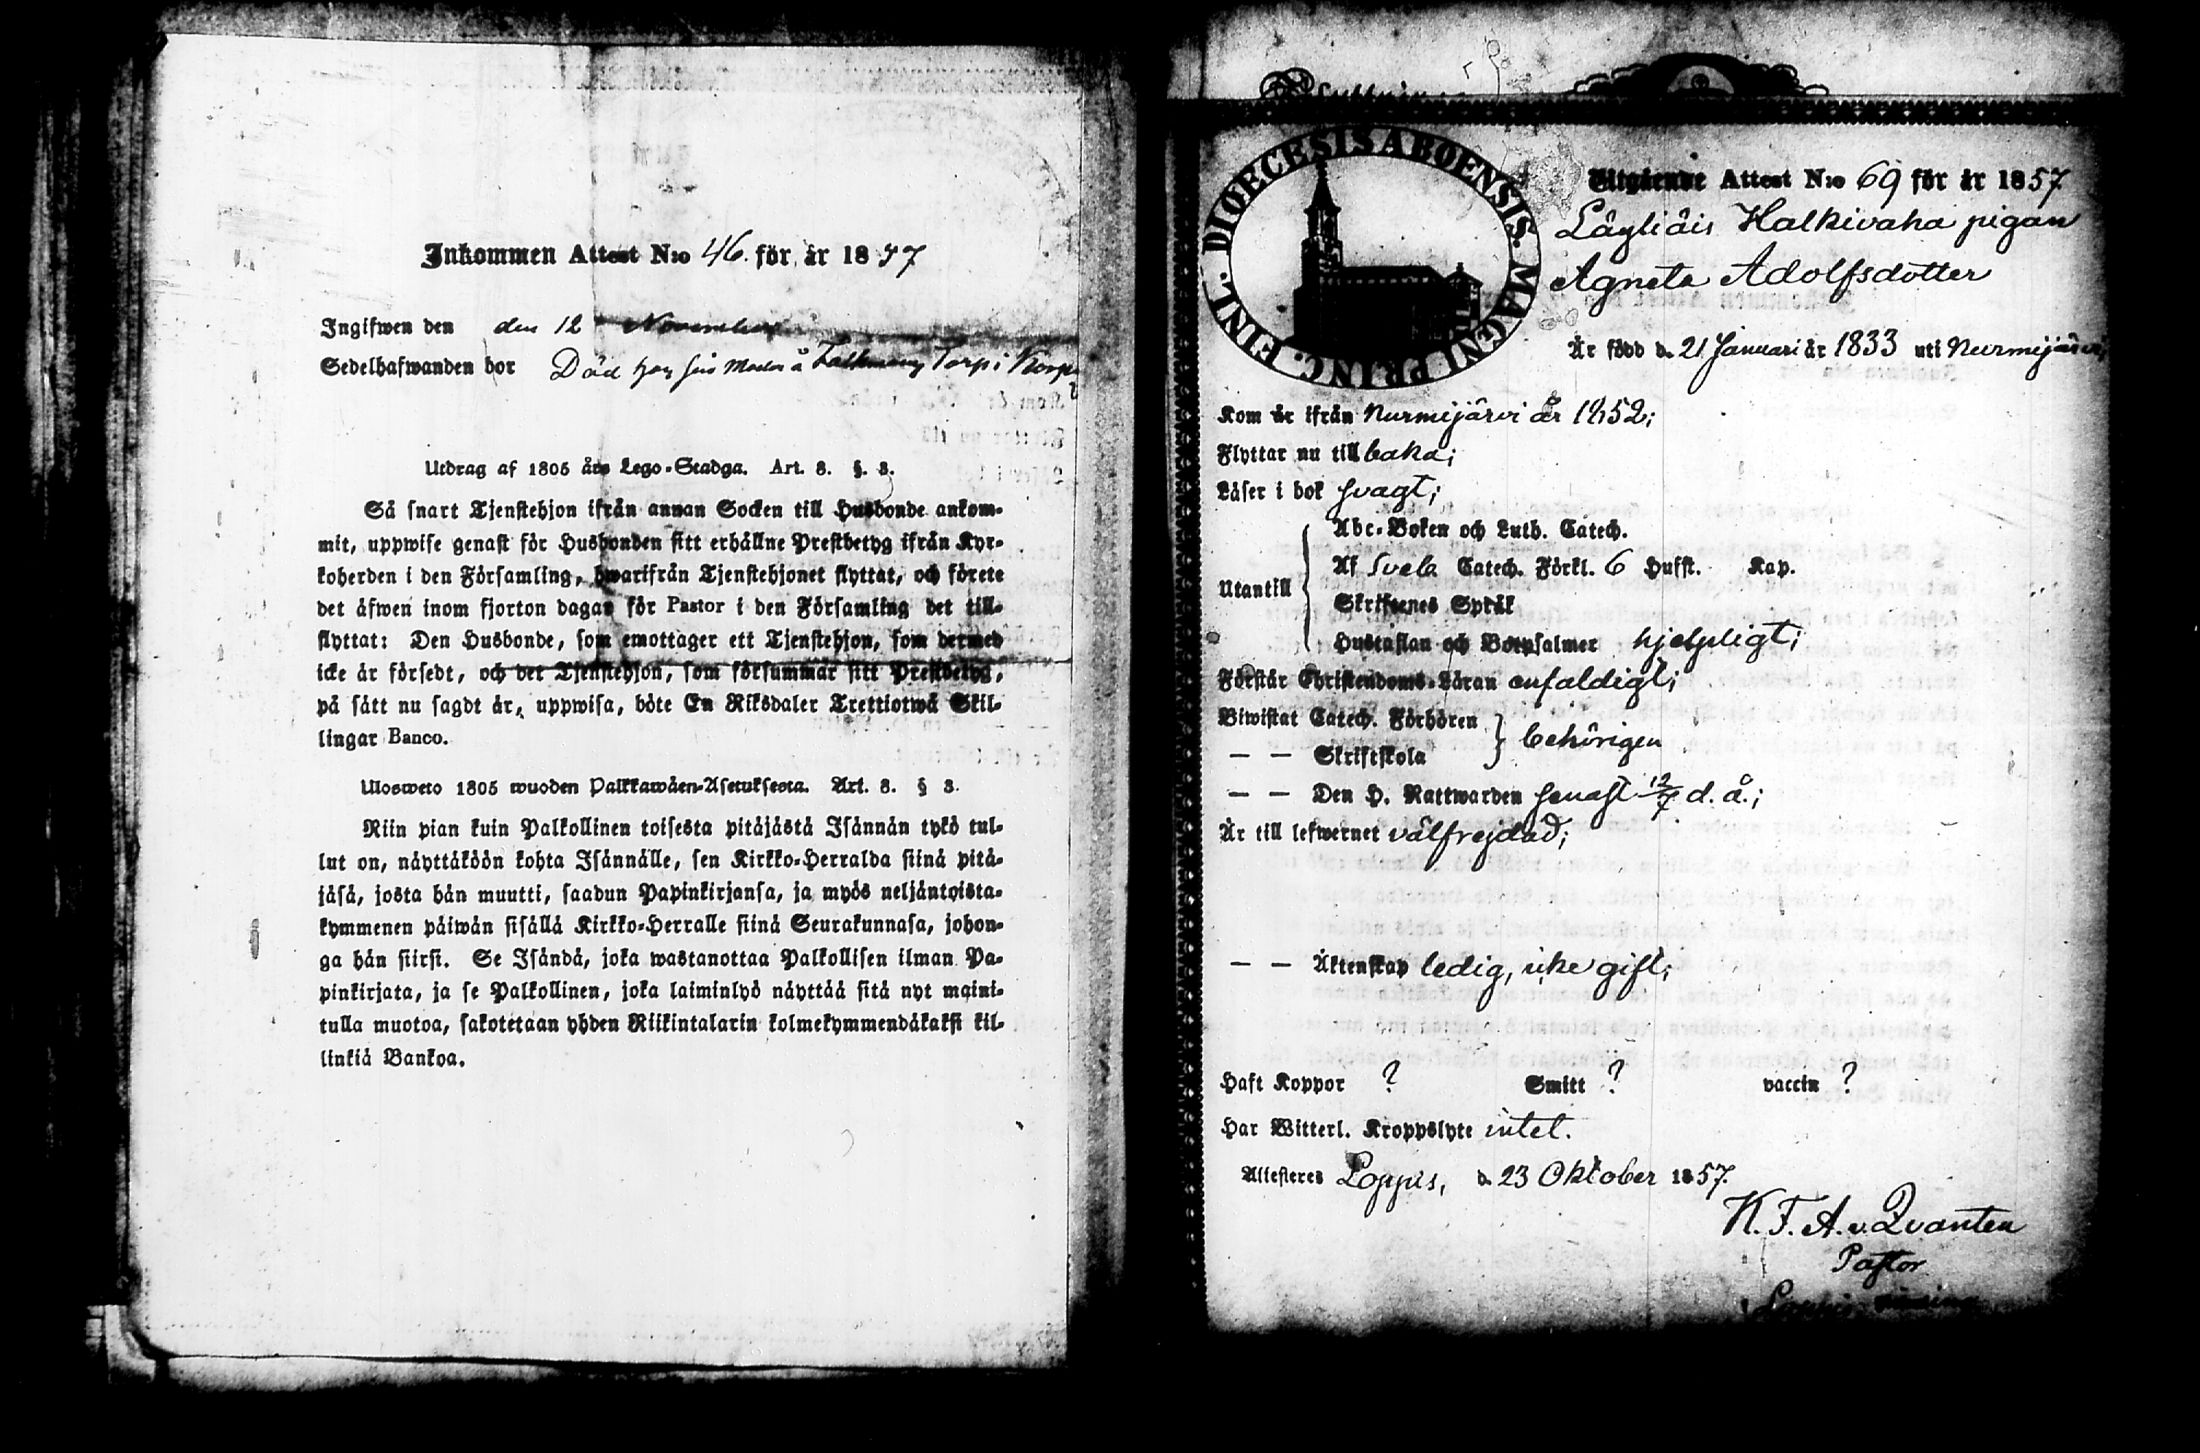 Inkommen Attest N:o 46. för år 1857
Ingifwen den den 12 November
Sedelhafwanden bor Död hos sin Moder å Torp i
Utdrag af 1805 års Lego-Stadga. Art. 8. §. 3.
Så snart Tjenstehjon ifrån annan Socken till Husbonde ankom-
mit, uppwise genast för Husbonden sitt erhållne Prestbetyg ifrån Kyr-
koherden i den Församling, hwarifrån Tjenstehjonet flyttat, och förete
det äfwen inom fjorton dagar för Pastor i den Församling det till-
flyttat: Den Husbonde, som emottager ett Tjenstehjon, som dermed
icke är försedt, och det Tjenstehjon, som försummar sitt Prestbetyg,
på sätt nu sagdt är, uppwisa, böte En Riksdaler Trettiotwå Skil-
lingar Banco.
Ulosweto 1805 wuoden Palkkawäen-Asetuksesta. Art. 8. § 3.
Niin pian kuin Palkollinen toisesta pitäjästä Isännän tykö tul-
lut on, näyttäköön kohta Isännälle, sen Kirkko-Herralda siinä pitä-
jäsä, josta hän muutti, saadun Papinkirjansa, ja myös neljäntoista-
kymmenen päiwän sisällä Kirkko-Herralle siinä Seurakunnasa, johon-
ga hän siirsi. Se Isändä, joka wastanottaa Palkollisen ilman Pa-
pinkirjata, ja se Palkollinen, joka laiminlyö näyttää sitä nyt maini-
tulla muotoa, sakotetaan yhden Riikintalarin kolmekymmendäkaksi kil-
linkiä Bankoa.
DIOECESIS ABOENSIS. MAGNI PRINC. FINL.
Utgående Attest N:o 69 för år 1857
Läyliäis Halkivaha pigan
Agneta Adolfsdotter
Är född d. 21 Januari år 1833 uti Nurmijärvi;
Kom år ifrån Nurmijärvi år 1852;
Flyttar nu till baka;
Läser i bok svagt;
Utantill
Abc-Boken och Luth. Catech.
Af Svela Catech. Förkl. 6 Hufst. Kap.
Skriftenes Språk
Hustaflan och Botpsalmer hjelpligt;
Förstår Christendoms-Läran enfaldigt;
Biwistat Catech. Förhören
— — Skriftskola
behörigen
— — Den H. Nattwarden senast 12/7 d. å.;
Är till lefwernet välfrejdad;
— — Äktenskap ledig, icke gift;
Haft Koppor ? Smitt ? vaccin ?
Har Witterl. Kroppslyte intet.
Attesteres Loppis, d. 23 Oktober 1857.
K. F. A. v. Qvanten
Pastor